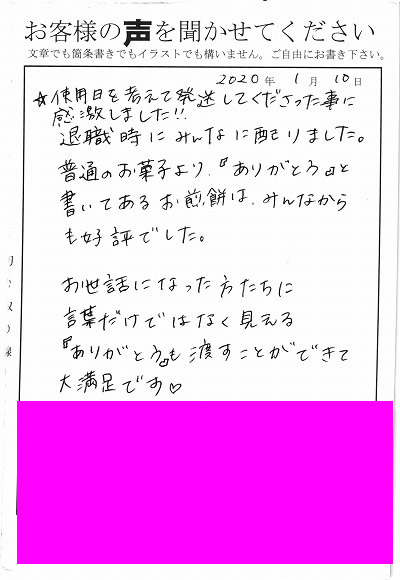 お客様の声を聞かせてください
文章でも箇条書きでもイラストでも構いません。ご自由にお書き下さい。
2020年 1月 10日
☆使用日を考えて発送してくださった事に
感激しました!!
退職時にみんなに配りました。
普通のお菓子より、『ありがとう』と
書いてあるお煎餅は、みんなから
も好評でした。
お世話になった方たちに
言葉だけではなく見える
『ありがとう』も渡すことができて
大満足です♡